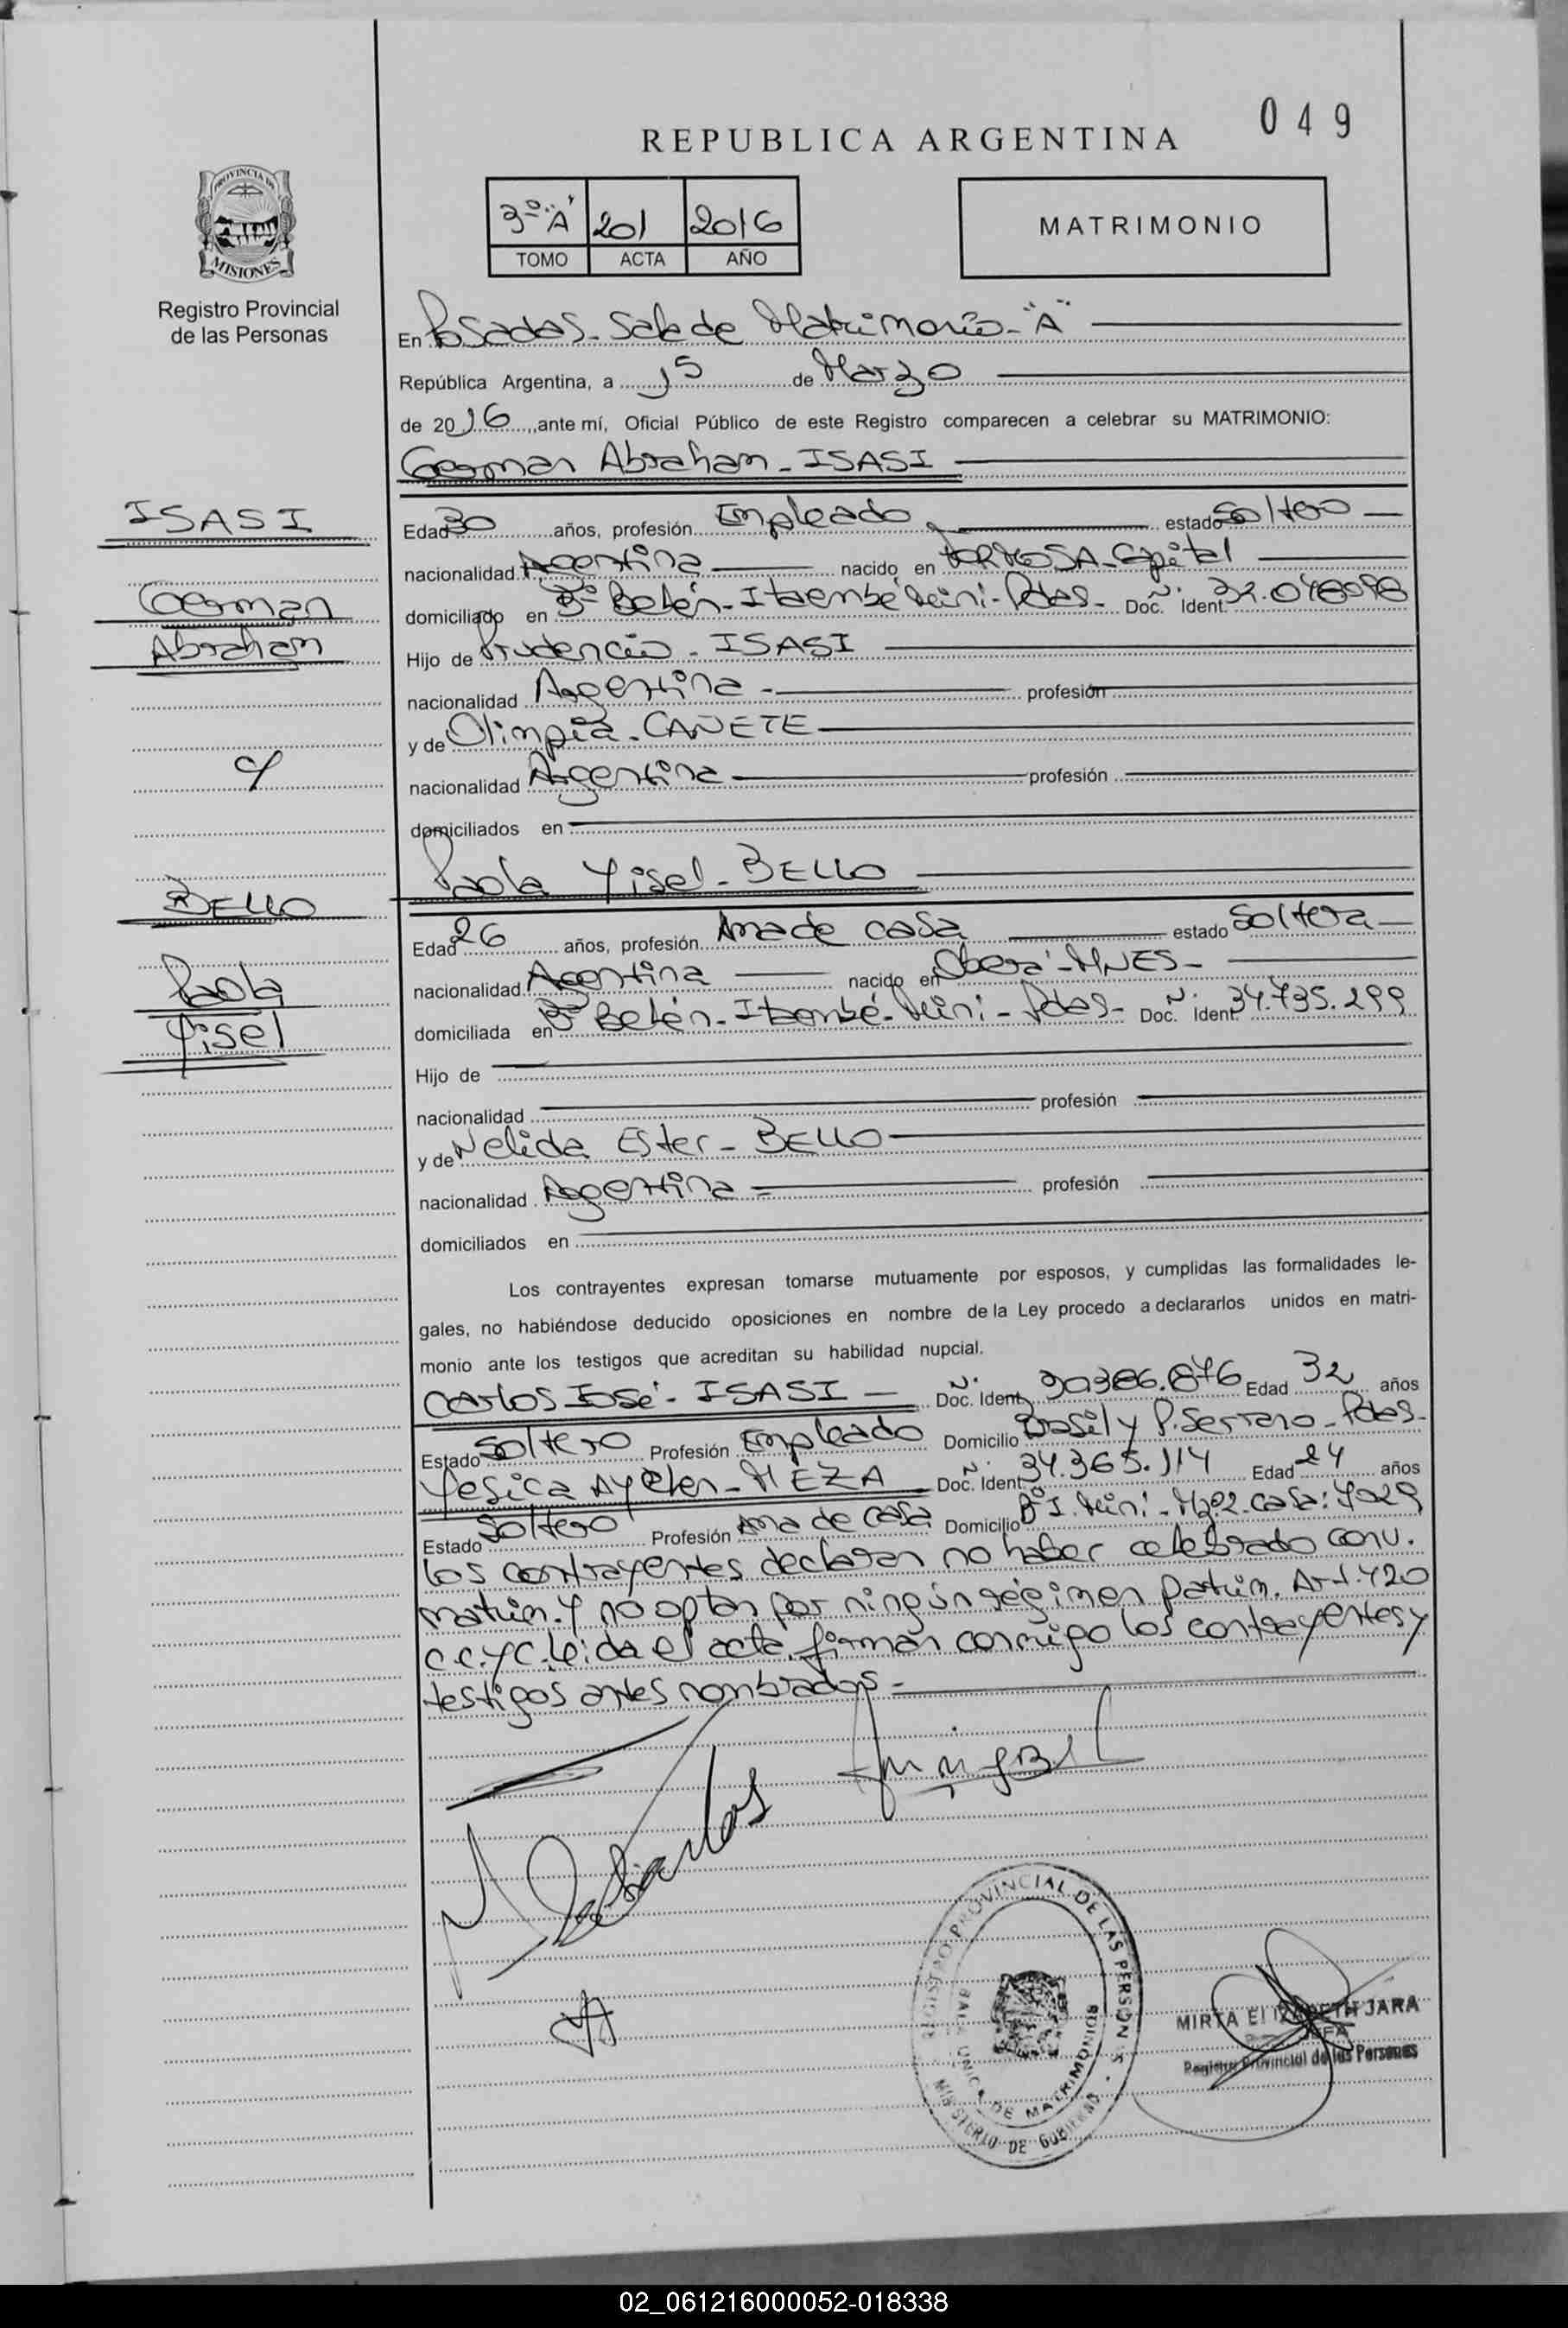 049
REPUBLICA ARGENTINA
3º "A" 201 2016
TOMO ACTA AÑO
MATRIMONIO
PROVINCIA DE
MISIONES
Registro Provincial
de las Personas
En Posadas - Sala de Matrimonio - "A"
República Argentina, a 15 de Marzo
de 2016, ante mí, Oficial Público de este Registro comparecen a celebrar su MATRIMONIO:
German Abraham - ISASI
ISASI
German
Abraham
c/
BELLO
Paola
Yisel
Edad 30 años, profesión Empleado estado Soltero
nacionalidad Argentina nacido en FORMOSA - Capital
domiciliado en Bº Belén - Itaembé Mini - Pdas - Doc. Ident.
Hijo de Prudencio - ISASI
nacionalidad Argentina - profesión
y de Olimpia - CAÑETE
nacionalidad Argentina profesión
domiciliados en
Paola Yisel - BELLO
Edad 26 años, profesión Ama de casa estado Soltera
nacionalidad Argentina nacido en Oberá - MNES -
domiciliada en Bº Belén - Itaembé - Mini - Pdas - Doc. Ident. 34.735.299
Hijo de
nacionalidad profesión
y de Nelida Ester - BELLO
nacionalidad Argentina - profesión
domiciliados en
Los contrayentes expresan tomarse mutuamente por esposos, y cumplidas las formalidades le-
gales, no habiéndose deducido oposiciones en nombre de la Ley procedo a declararlos unidos en matri-
monio ante los testigos que acreditan su habilidad nupcial.
Carlos José - ISASI Doc. Ident. 30386.876 Edad 32 años
Estado Soltero Profesión Empleado Domicilio Brasil y P. Serrano - Pdas -
Yesica Ayelen - MEZA Doc. Ident. 34.365.114 Edad 24 años
Estado Soltero Profesión Ama de casa Domicilio Bº I. Mini - casa: 7029
Los contrayentes declaran no haber celebrado conv.
matrim. y no optan por ningún régimen patrim. Art. 420
C.C.Y C. Leída el acta, firman conmigo los contrayentes y
testigos antes nombrados -
Carlos
REGISTRO PROVINCIAL DE LAS PERSONAS
UNICA DE MATRIMONIOS
MINISTERIO DE GOBIERNO
MIRTA ELIZABETH JARA
JEFA
Registro Provincial de las Personas
02_061216000052-018338